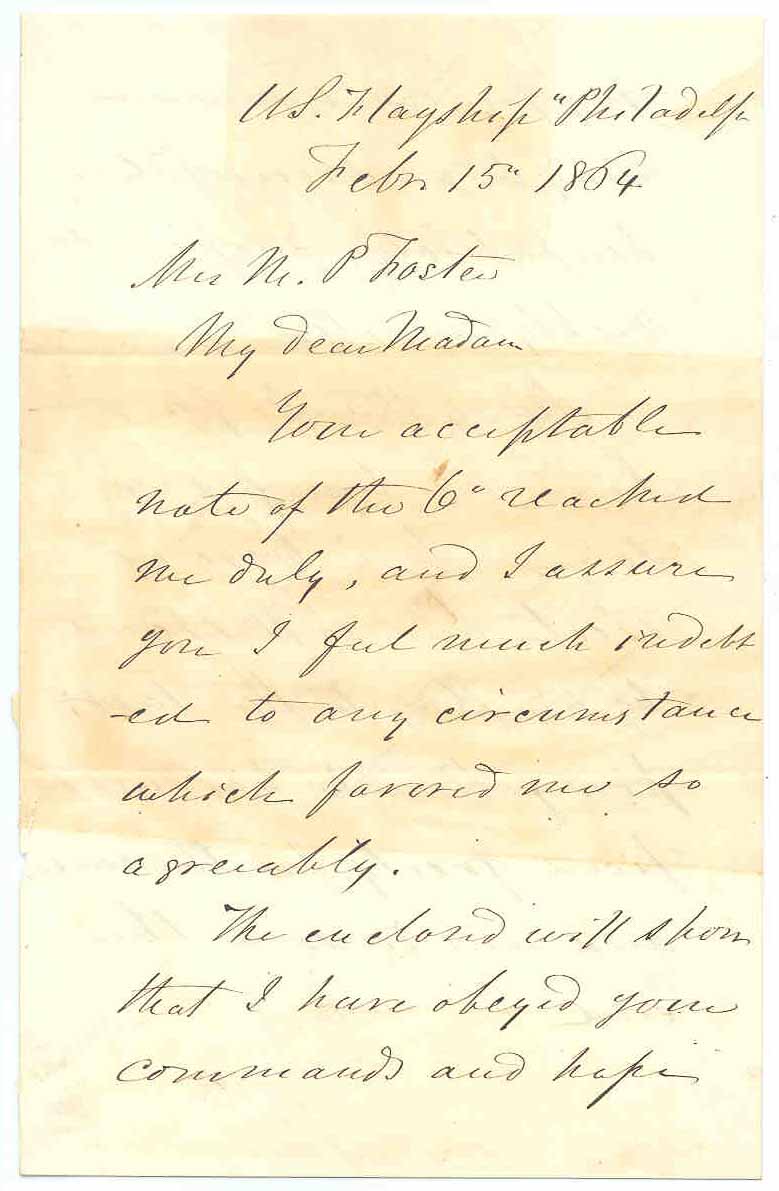 US. Flagship "Philadelp
Febr 15" 1864
Mrs M. P Foster
My dear Madam
Your acceptable
note of the 6" reached
me duly, and I assure
you I feel much indebt
-ed to any circumstance
which favored me so
agreeably.
The enclosed will show
that I have obeyed your
commands and hope